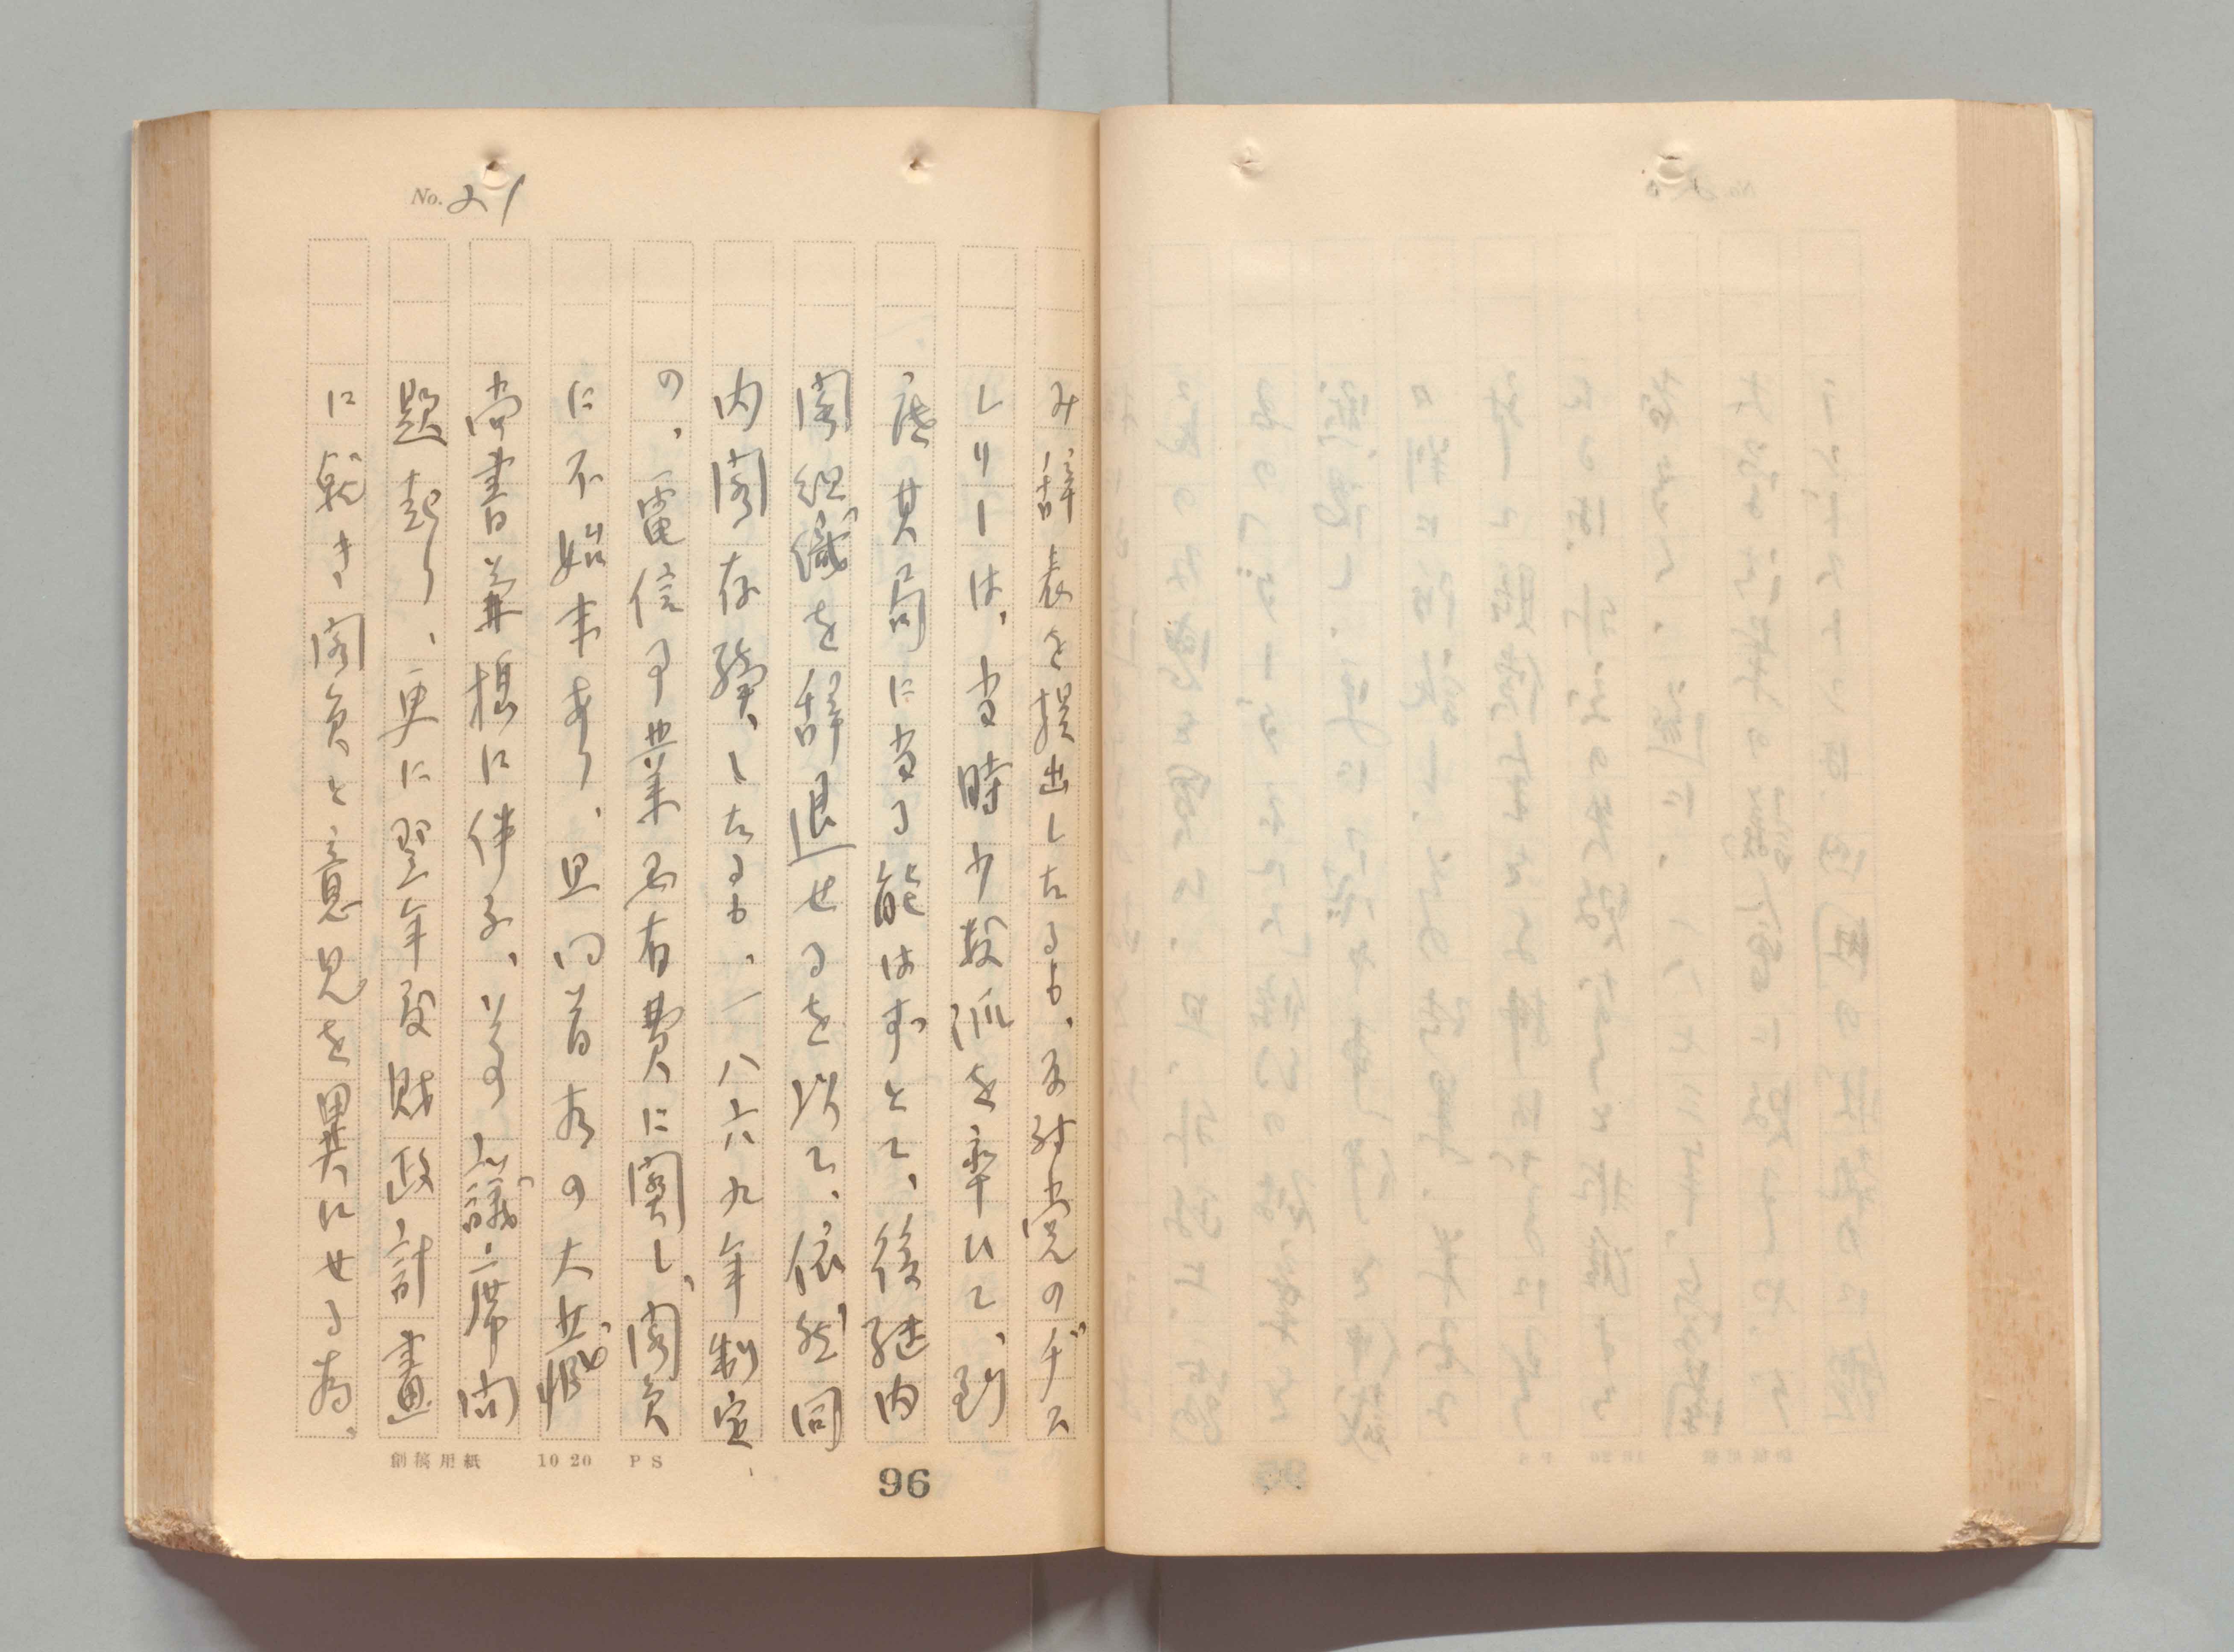 No. 21
み、辞表を提出したるも、反対党のヂス
レリーは、当時少数派を率ひて、到
底其局に当る能はずとて、後継内
閣組織を辞退せるを以て、依然同
内閣存続したるも、一八六九年制定
の、電信事業國有費に関し、閣員
に不始末あり、且つ首相の大蔵
尚書兼摂に伴ふ、其の議席問
題起り、更に翌年度財政計畫
に就き、閣員と意見を異にせる為、
創稿用紙 10 20 PS
96